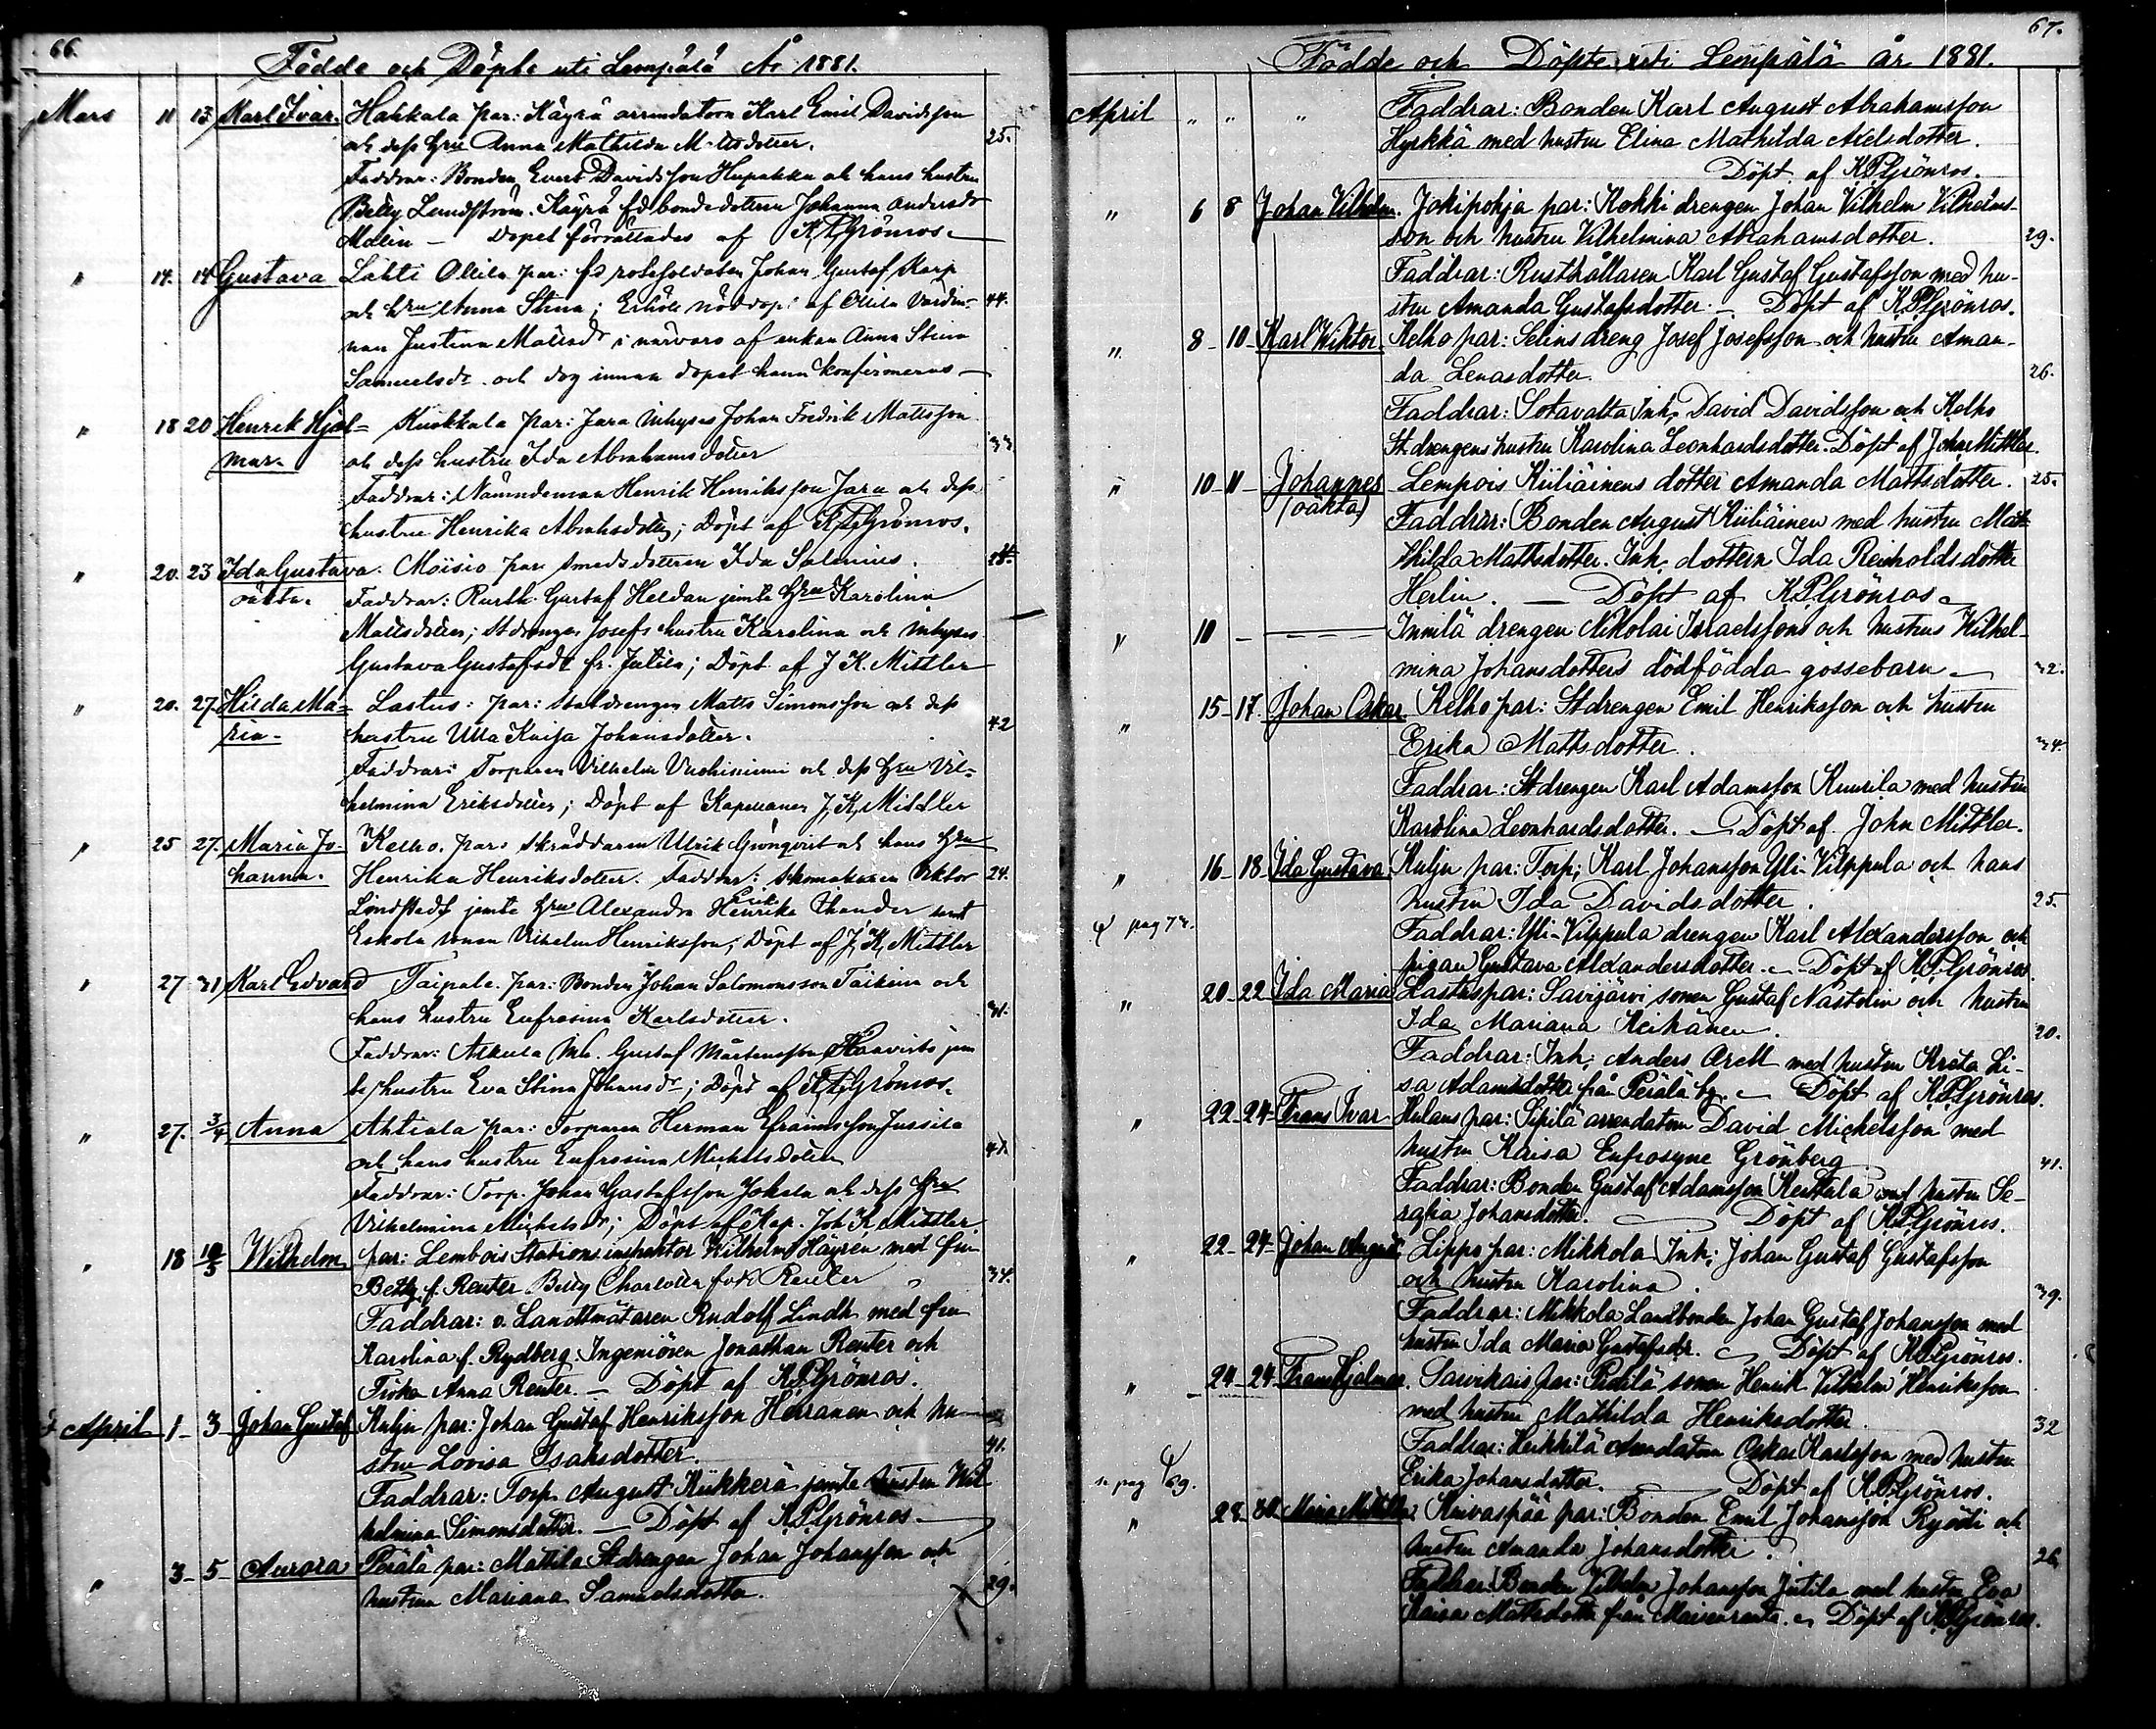 66.
Födde och Döpte uti Lempälä År 1881.
Mars 11 13 Karl Ivar. Hakkala par: Käyrä arrendatorn Karl Emil Davidsson
och dess hru Anna Mathilda M-tsdotter. 25.
Faddrar: Bonden Evert Davidsson Hupakka och hans hustru
Betty Lundström. Käyrä fd bondedottren Johanna Andersdr
Malin — Dopet förrättades af K.P.Grönros.
" 14. 14 Gustava Lahti Ollila par: fd rotesoldaten Johan Gustaf Karp
och hru Anna Stina; Erhöll nöddop af Ollila Värdin- 44.
nan Justina Mattsdr i närvaro af enkan Anna Stina
Samuelsdr. och dog innan dopet hann konfirmeras —
" 18 20 Henrik Hjal- Kuokkala par: Jara Inhyses Johan Fredrik Mattsson
mar. och dess hustru Ida Abrahamsdotter 33
Faddrar: Nämndeman Henrik Henriksson Jara och dess
hustru Henrika Abrahsdotter; Döpt af K.P.Grönros.
" 20. 23 Ida Gustava. Moisio par. smedsdottren Ida Salenius.
oäkta. Faddrar: Rusth. Gustaf Heldan jemte hru Karolina
Mattsdotter; Stdrenges Josefs hustru Karolina och Inhyses
Gustava Gustafsdr fr. Jutila; Döpt af J K. Mittler
" 20. 27. Hilda Ma- Lastus: par: Staldrengen Matts Simonsson och dess
ria. hustru Ulla Kaisa Johansdotter. 42
Faddrar: Torparen Vilhelm Vuohiniemi och dess hru Vil-
helmina Eriksdotter; Döpt af Kapellanen J.K. Mittler
" 25 27. Maria Jo- Kelho. par: Skräddaren Ulrik Grönqvist och hans hru
hanna. Henrika Henriksdotter. Faddrar: Skomakaren Viktor 24.
Lindstedt jemte hru Alexandra Henrika Thander samt
Eskola sonen Vilhelm Henriksson; Döpt af J.K. Mittler
" 27 31 Karl Edvard Taipale. par: Bonden Johan Salomonsson Taikina och
hans hustru Eufrosina Karlsdotter. 31.
Faddrar: Alkula Inh. Gustaf Mårtensson Haavisto jem
te hustru Eva Stina Johansdr; Döpt af K.P.Grönros.
" 27. 3/4 Anna Ahtiala par: Torparen Herman Efraimsson Jussila
och hans hustru Eufrosina Michelsdotter 41.
Faddrar: Torp. Johan Gustafsson Jokela och dess hru
Vilhelmina Michelsdr; Döpt af Kap. Joh K Mittler.
" 18 Wilhelm par: Lembois Stationsinspektor Wilhelm Häyrén med fru
Betty f. Reuter Betty Charlotta född Reuter 34.
Faddrar: v. Landtmätaren Rudolf Lindh med fru
Karolina f. Rydberg. Ingeniören Jonathan Reuter och
Fröken Anna Reuter. — Döpt af K.P.Grönros.
April 1 3 Johan Gustaf Kulju par: Johan Gustaf Henriksson Herranen och hu-
stru Lovisa Isaksdotter. 41.
Faddrar: Torp. August Kukkerä jemte hustru Wil
helmina Simonsdotter. — Döpt af K.P.Grönros —
" 3 5 Aurora Perälä par: Mattila Stdrengen Johan Johansson och
hustrun Mariana Samuelsdotter. 29.
67.
Födde och Döpte uti Lempälä år 1881.
April " " " Faddrar: Bonden Karl August Abrahamsson
Hyrkkä med hustru Elina Mathilda Axelsdotter.
Döpt af K.P.Grönros.
" 6 8 Johan Vilhelm. Jokipohja par: Kokki drengen Johan Vilhelm Vilhelms-
son och hustru Vilhelmina Abrahamsdotter. 29.
Faddrar: Rusthållaren Karl Gustaf Gustafsson med hu-
stru Amanda Gustafsdotter — Döpt af K.P.Grönros.
" 8 10 Karl Viktor Kelho par: Selins dreng Josef Josefsson och hustru Aman-
da Lenasdotter. 26.
Faddrar: Sotavalta Inh; David Davidsson och Kelho
Stdrengens hustru Karolina Leonhardsdotter. Döpt af John Mittler.
" 10 11 Johannes Lempois Kuliäinens dotter Amanda Mattsdotter. 25.
(oäkta) Faddrar: Bonden August Kuliäinen med hustru Mat-
thilda Mattsdotter. Inh. dottern Ida Reinholdsdotter
Herlin. — Döpt af K.P.Grönros.
" 10 — Innilä drengen Nikolai Israelssons och hustrus Wilhel-
mina Johansdotters dödfödda gossebarn — 32.
" 15 17. Johan Oskar Kelho par: Stdrengen Emil Henriksson och hustru
Erika Mattsdotter. 34.
Faddrar: Stdrengen Karl Adamsson Kuurila med hustru
Karolina Leonhardsdotter. — Döpt af John Mittler.
" 16 18 Ida Gustava Kulju par: Torp; Karl Johansson Yli-Vilppula och hans
hustru Ida Davidsdotter. 25.
pag 73. Faddrar: Yli-Vilppula drengen Karl Alexandersson och
pigan Gustava Alexandersdotter. — Döpt af K.P.Grönros.
" 20 22 Ida Maria Lastus par: Savijärvi sonen Gustaf Nastolin och hustru
Ida Mariana Keihänen. 20.
Faddrar: Inh; Anders Orell med hustru Kreta Li-
sa Adamsdotter från Perälä by. — Döpt af K.P.Grönros.
" 22 24 Frans Ivar Kulans par: Sipilä arrendatorn David Michelsson med
hustru Kaisa Eufrosyne Grönberg 41.
Faddrar: Bonden Gustaf Adamsson Kerttala med hustru Se-
rafia Johansdotter. Döpt af K.P.Grönros.
" 22 24 Johan August Lippo par: Mikkola Inh; Johan Gustaf Gustafsson
och hustru Karolina. 39.
Faddrar: Mikkola Landbonden Johan Gustaf Johansson med
hustru Ida Maria Gustafsdr. — Döpt af K.P.Grönros.
" 24 24 Frans Hjalmar. Sarvikais par: sonen Henrik Vilhelm Henriksson
med hustru Mathilda Henriksdotter. 32
Faddrar: Heikkilä Arrendatorn Oskar Karlsson med hustru
pag 69. Erika Johansdotter. — Döpt af K.P.Grönros.
" 28 30 Maria Matilda. Kuivaspää par: Bonden Emil Johansson Ryödi och
hustru Amanda Johansdotter. 26.
Faddrar: Bonden Vilhelm Johansson Jutila med hustru Eva
Kaisa Mattsdotter från Maisenranta. — Döpt af K.P.Grönros.